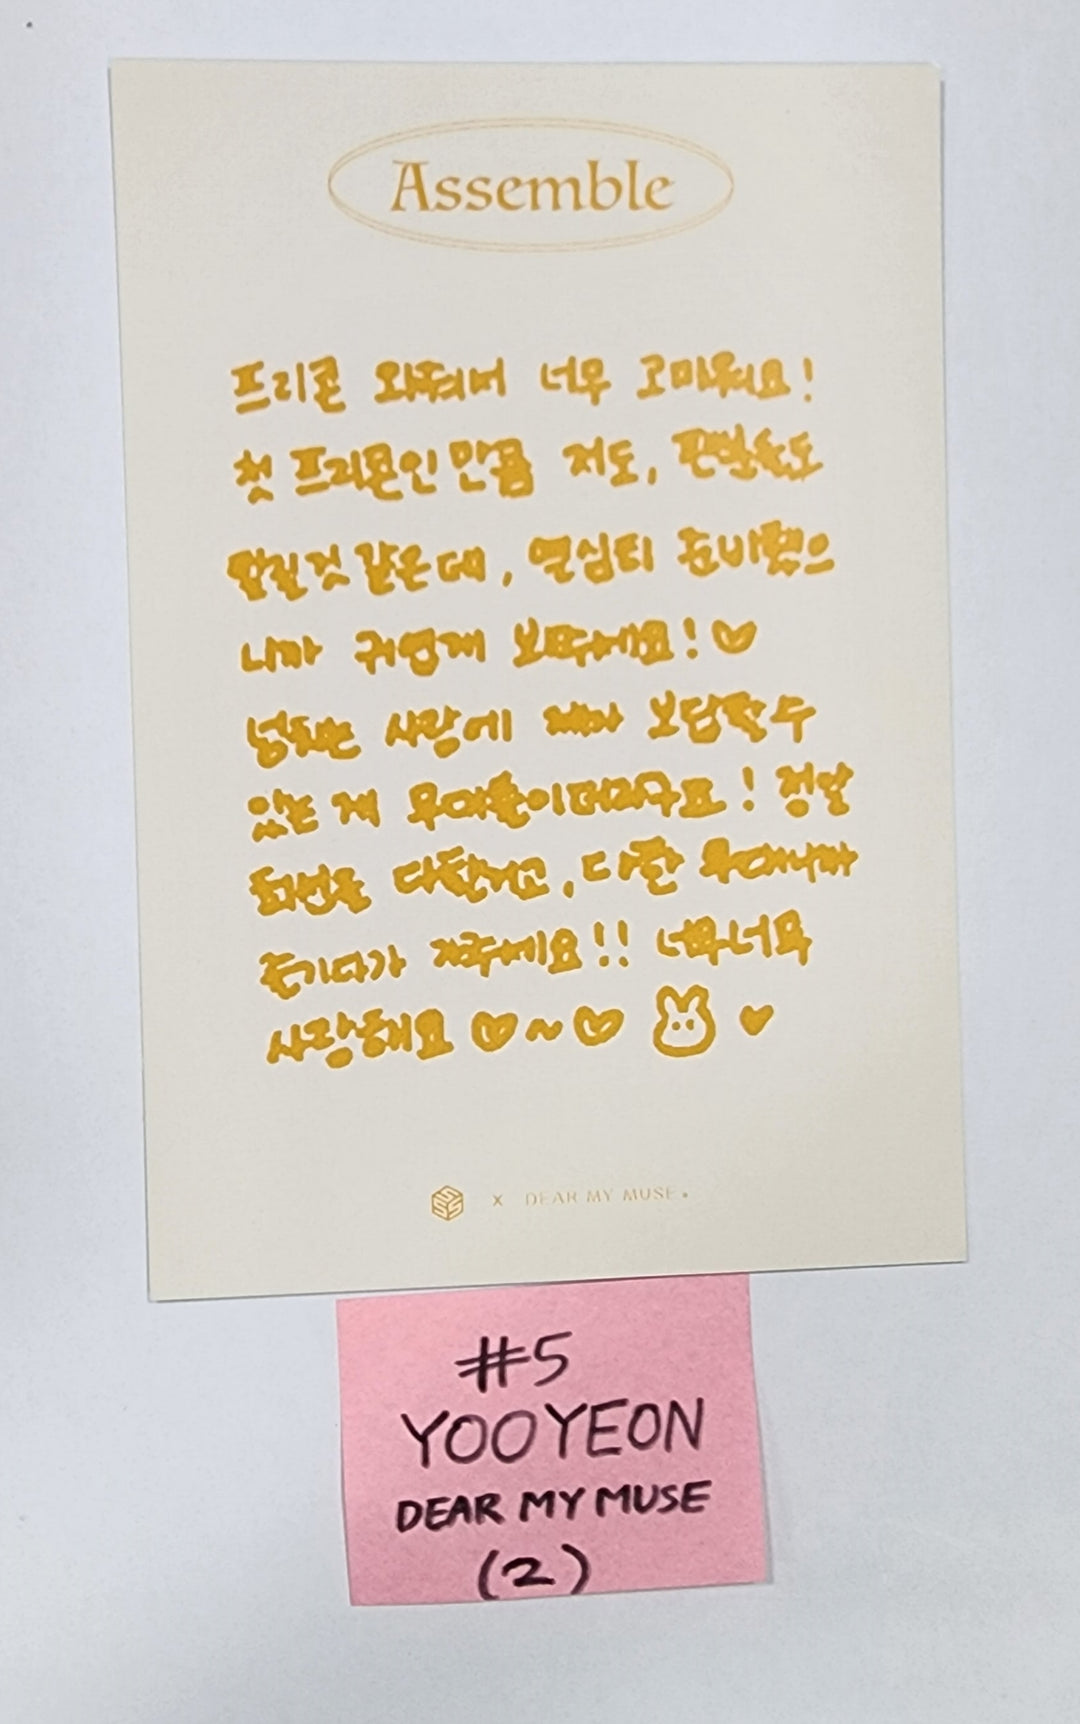 Assemble
프리콘 와줘서 너무 고마워요!
첫 프리콘인만큼 저도, 팬분들도
떨릴것 같은데, 열심히 준비했으
니까 귀엽게 봐주세요!♡
넘치는 사랑에 제가 보답할 수
있는 게 무대뿐이더라구요! 정말
최선을 다할거고, 다 한 무대니까
즐기다가 가주세요!! 너무너무
사랑해요 ♡~♡ ♥
SSS x DEAR MY MUSE.
#5
YOOYEON
DEAR MY MUSE
(2)